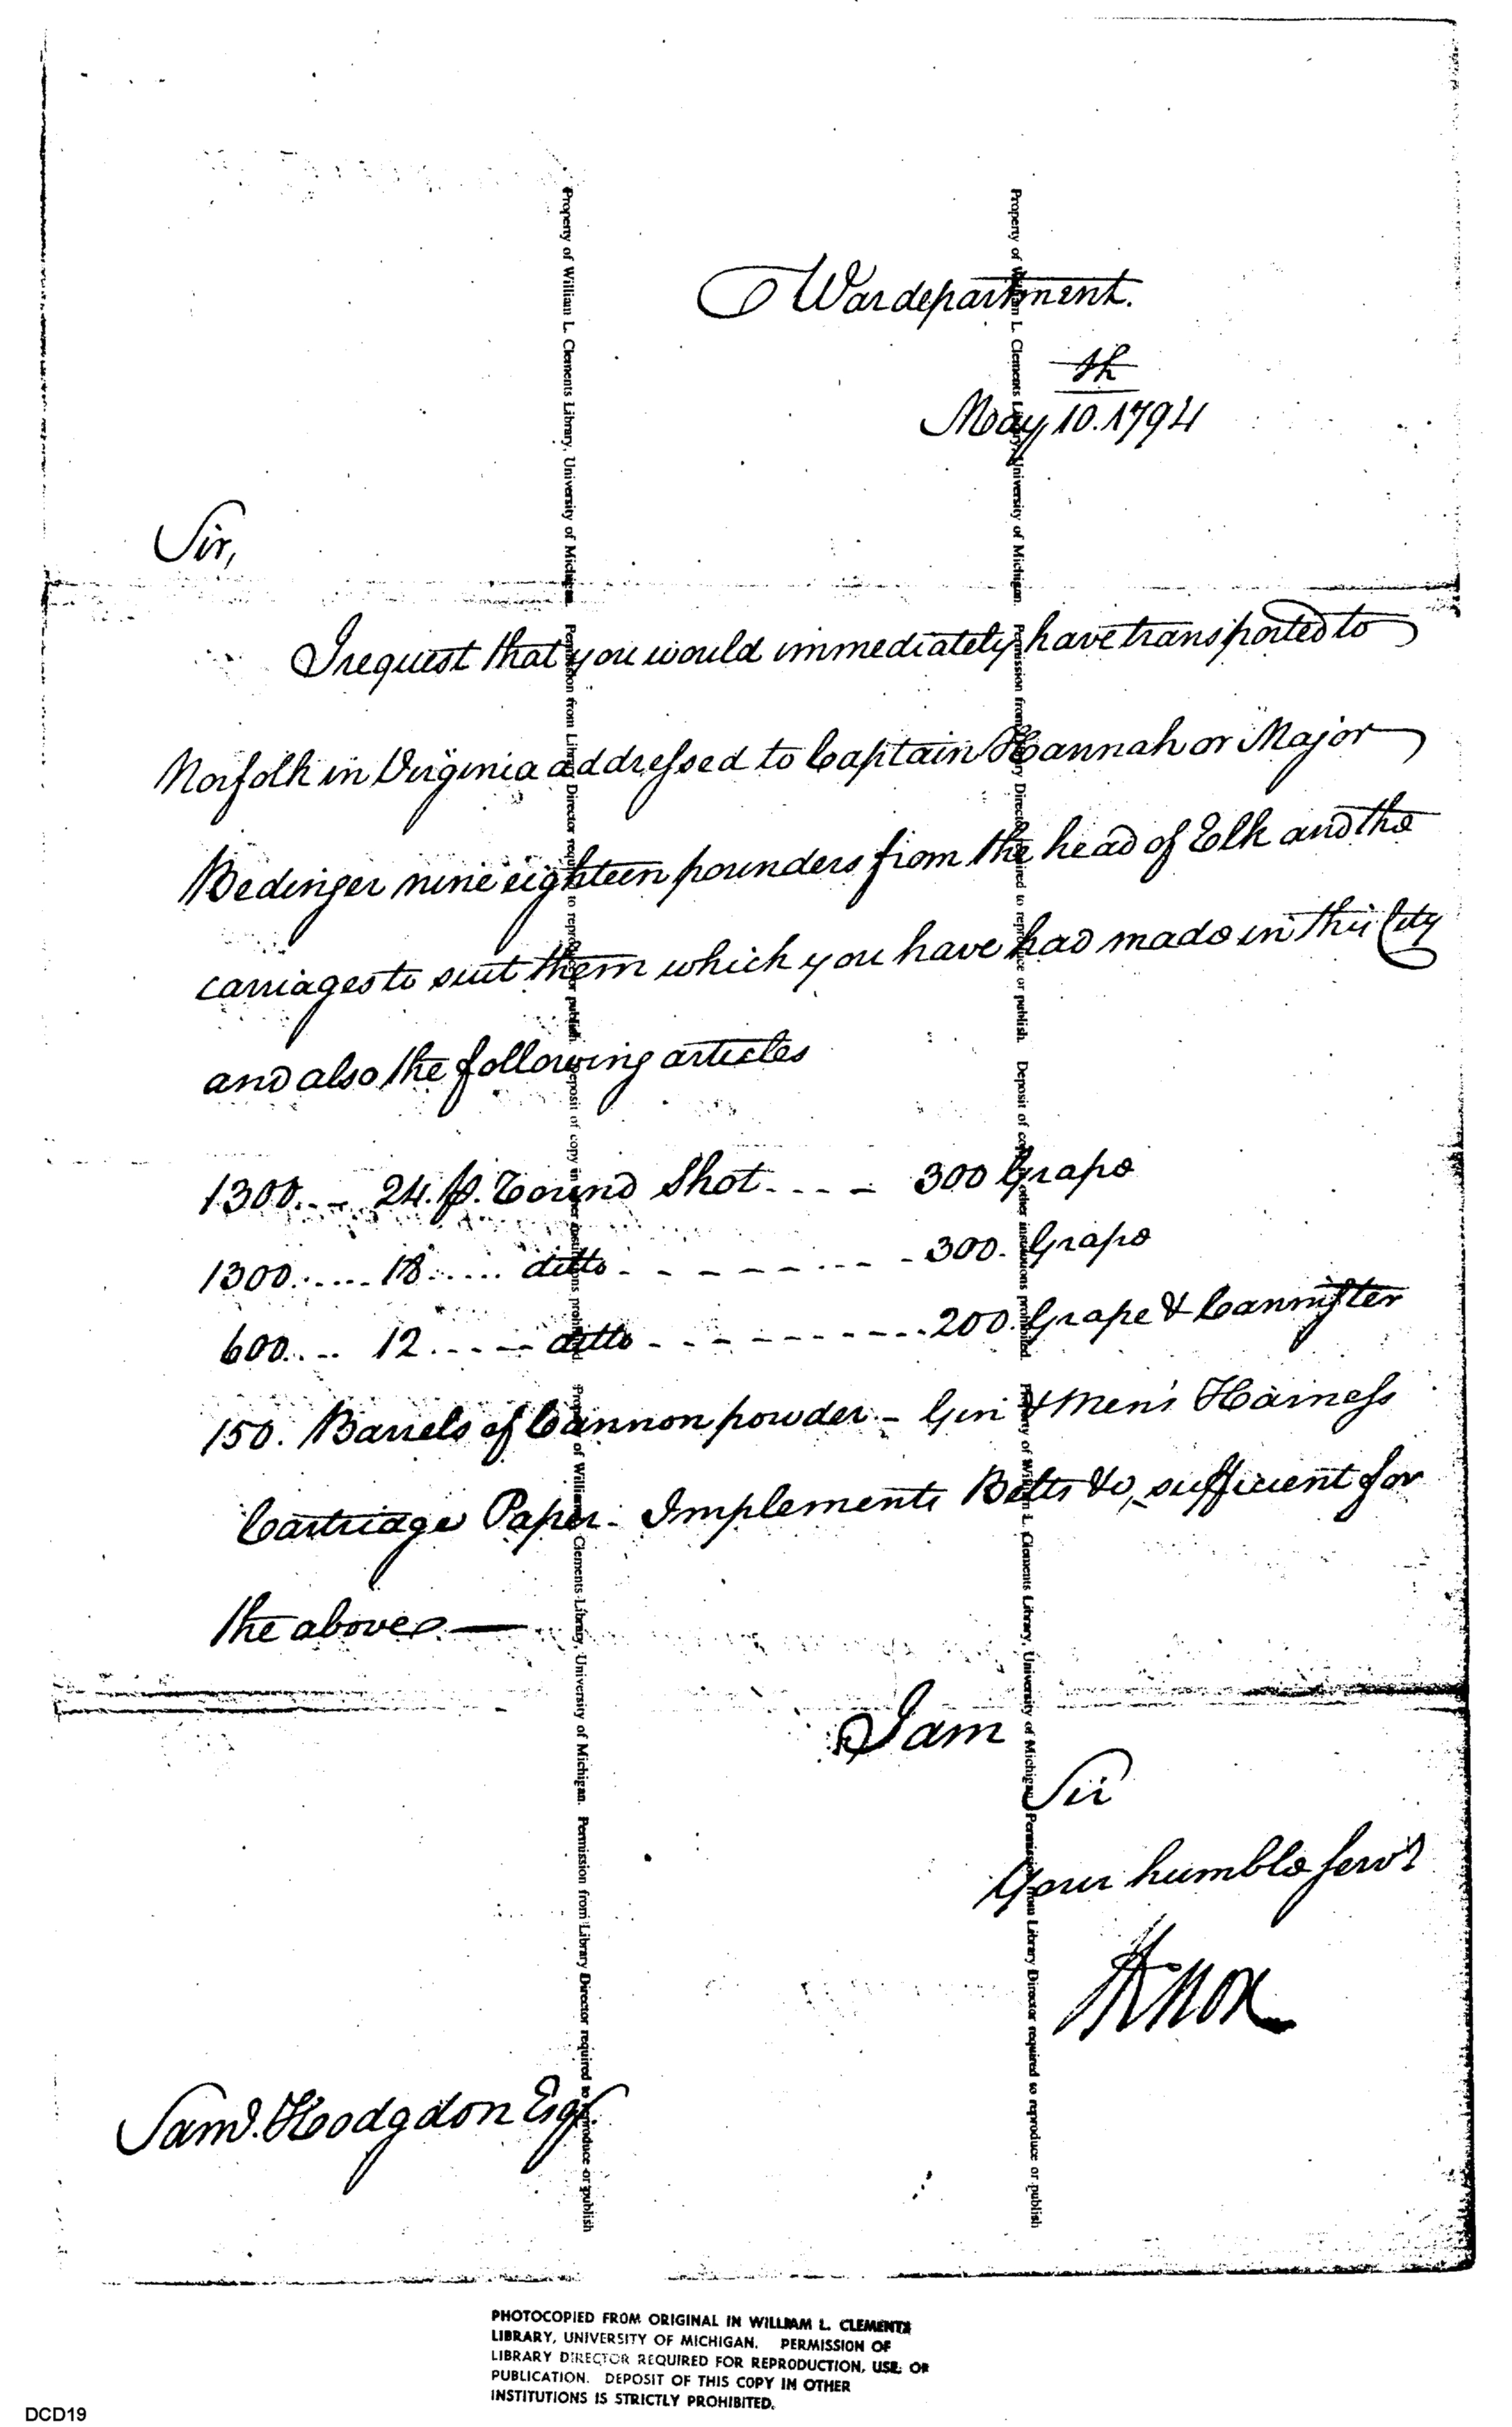 War department.
May 10th. 1794
Sir,
I request that you would immediately have transported to
Norfolk in Virginia addressed to Captain Hannah or Major
Bedinger nine eighteen pounders from the head of Elk and the
carriages to suit them which you have had made in this City
and also the following articles
1300... - 24. p. round Shot.... - 300 Grape
1300...... 18...... ditto. - - - - - ... - - 300. Grape
600.... 12...... ditto - - - - - - - - ... 200. Grape & Cannister
150. Barrels of Cannon powder - Gin & Men's Harness
Cartridge Paper - Implements Belts &c, sufficient for
the above —
I am
Sir
Your humble servt
HKnox
Saml. Hodgdon Esqr.
Property of William L. Clements Library, University of Michigan. Permission from Library Director required to reproduce or publish. Deposit of copy in other institutions prohibited.
Property of William L. Clements Library, University of Michigan. Permission from Library Director required to reproduce or publish
Property of William L. Clements Library, University of Michigan. Permission from Library Director required to reproduce or publish. Deposit of copy in other institutions prohibited.
Property of William L. Clements Library, University of Michigan. Permission from Library Director required to reproduce or publish
PHOTOCOPIED FROM ORIGINAL IN WILLIAM L. CLEMENTS
LIBRARY, UNIVERSITY OF MICHIGAN. PERMISSION OF
LIBRARY DIRECTOR REQUIRED FOR REPRODUCTION, USE, OR
PUBLICATION. DEPOSIT OF THIS COPY IN OTHER
INSTITUTIONS IS STRICTLY PROHIBITED.
DCD19